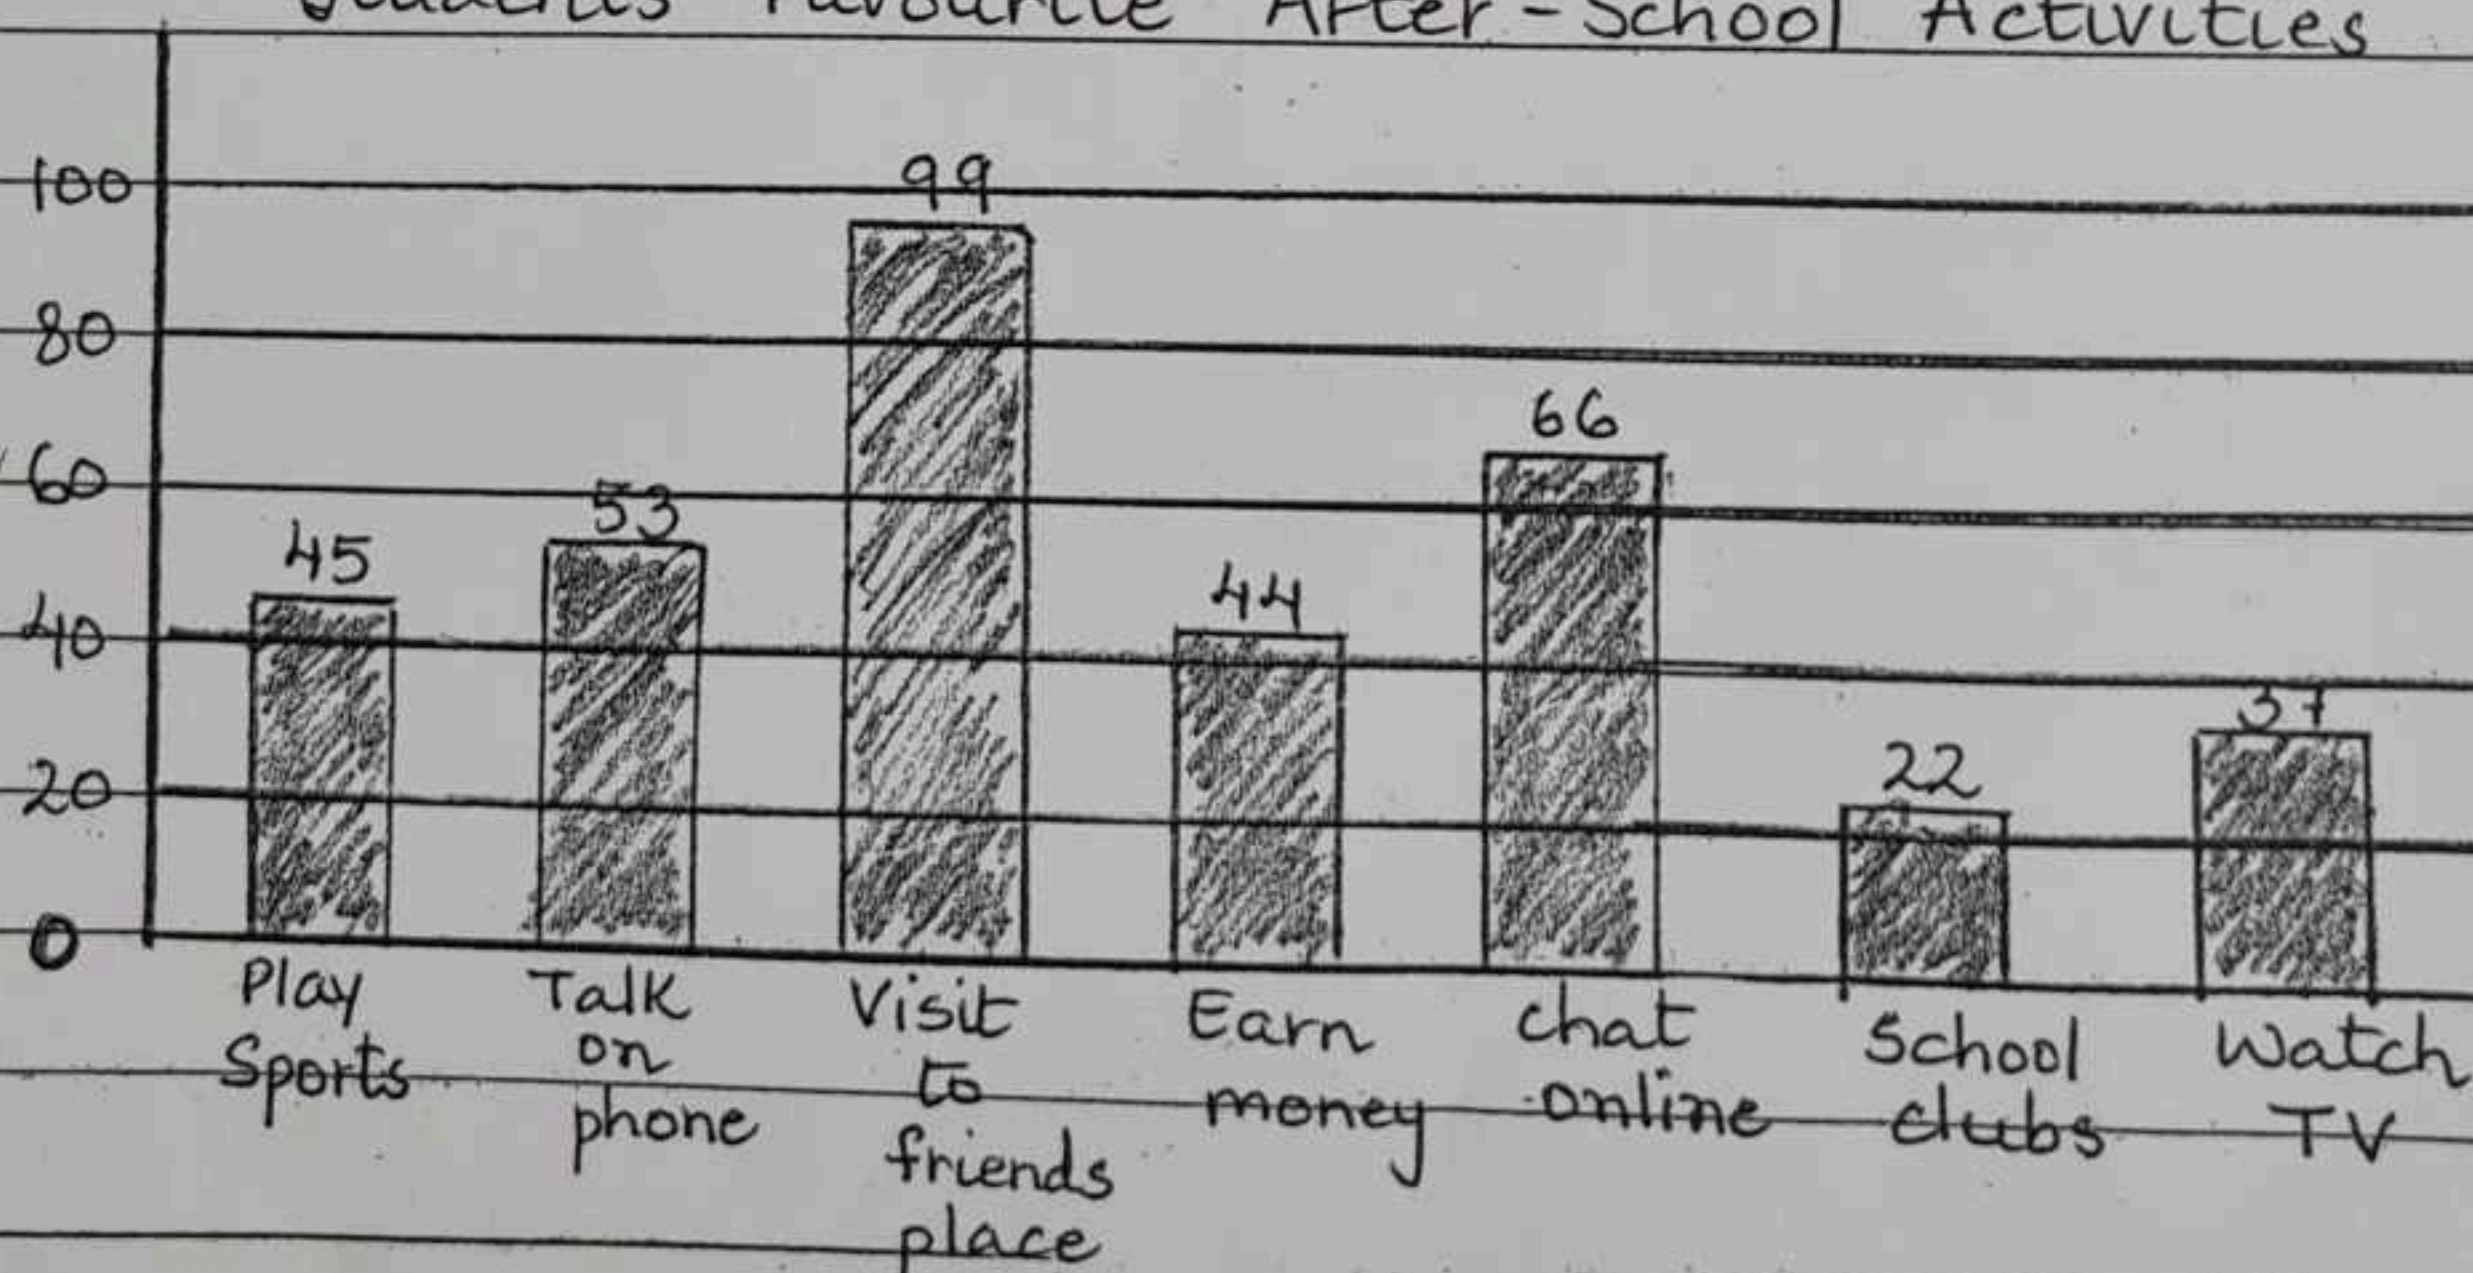 Students Favourite After-School Activities
100
80
60
40
20
0
45
53
99
44
66
22
37
Play
Sports
Talk
on
phone
Visit
to
friends
place
Earn
money
chat
online
School
clubs
Watch
TV